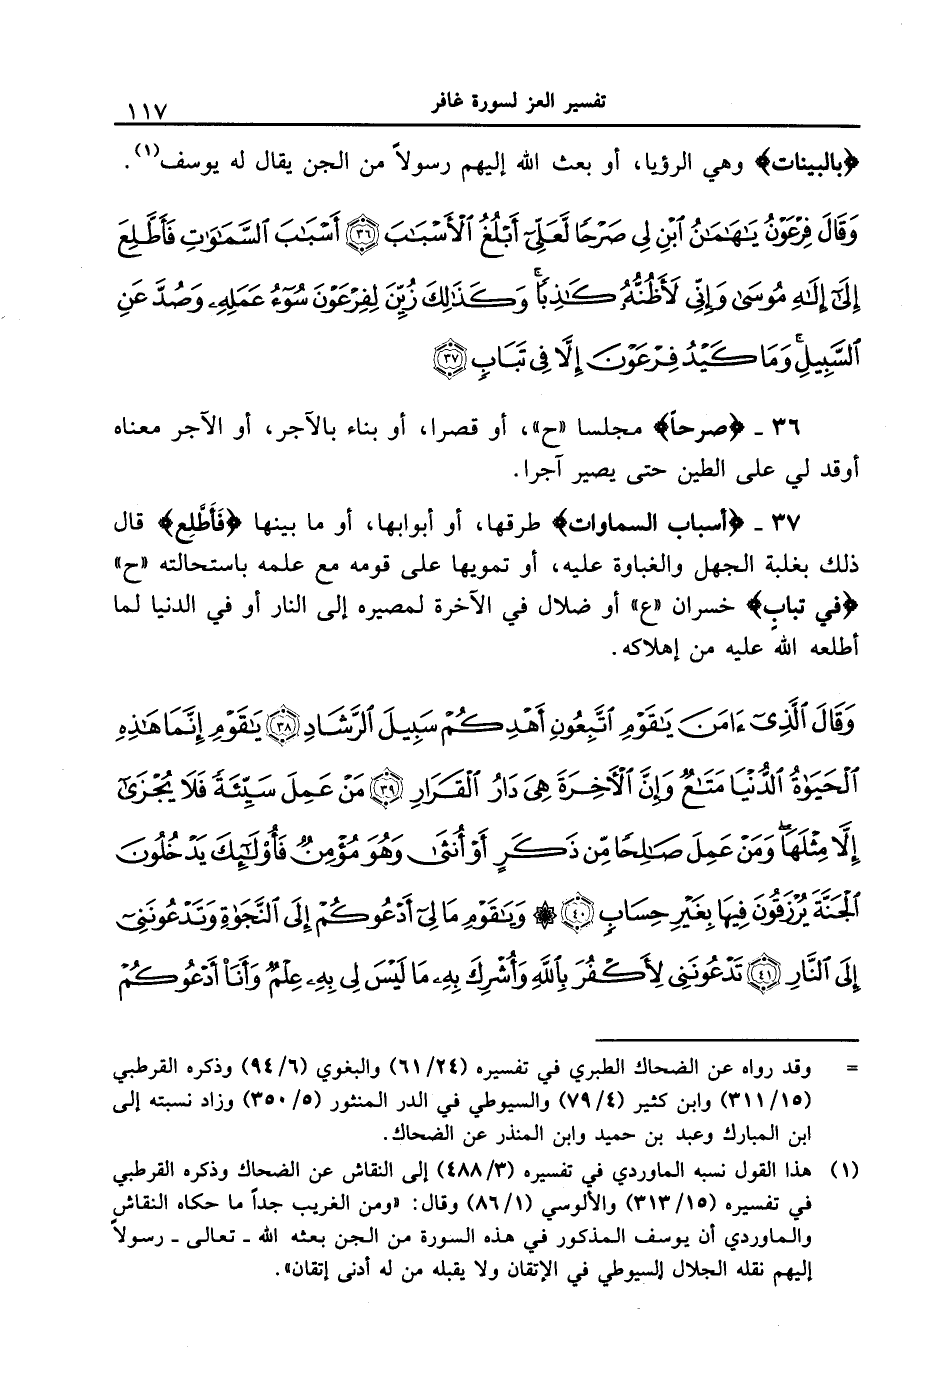 تفسير العز لسورة غافر
١١٧
﴿بالبينات﴾ وهي الرؤيا، أو بعث الله إليهم رسولاً من الجن يقال له يوسف(١).
وَقَالَ فِرْعَوْنُ يَٰهَٰمَٰنُ ٱبْنِ لِى صَرْحًا لَّعَلِّىٓ أَبْلُغُ ٱلْأَسْبَٰبَ ﴿٣٦﴾ أَسْبَٰبَ ٱلسَّمَٰوَٰتِ فَأَطَّلِعَ
إِلَىٰٓ إِلَٰهِ مُوسَىٰ وَإِنِّى لَأَظُنُّهُۥ كَٰذِبًا ۚ وَكَذَٰلِكَ زُيِّنَ لِفِرْعَوْنَ سُوٓءُ عَمَلِهِۦ وَصُدَّ عَنِ
ٱلسَّبِيلِ ۚ وَمَا كَيْدُ فِرْعَوْنَ إِلَّا فِى تَبَابٍ ﴿٣٧﴾
٣٦ - ﴿صرحاً﴾ مجلسا «ح»، أو قصرا، أو بناء بالآجر، أو الآجر معناه
أوقد لي على الطين حتى يصير آجرا.
٣٧ - ﴿أسباب السماوات﴾ طرقها، أو أبوابها، أو ما بينها ﴿فَأَطَّلِع﴾ قال
ذلك بغلبة الجهل والغباوة عليه، أو تمويها على قومه مع علمه باستحالته «ح»
﴿في تبابٍ﴾ خسران «ع» أو ضلال في الآخرة لمصيره إلى النار أو في الدنيا لما
أطلعه الله عليه من إهلاكه.
وَقَالَ ٱلَّذِىٓ ءَامَنَ يَٰقَوْمِ ٱتَّبِعُونِ أَهْدِكُمْ سَبِيلَ ٱلرَّشَادِ ﴿٣٨﴾ يَٰقَوْمِ إِنَّمَا هَٰذِهِ
ٱلْحَيَوٰةُ ٱلدُّنْيَا مَتَٰعٌ وَإِنَّ ٱلْأَخِرَةَ هِىَ دَارُ ٱلْقَرَارِ ﴿٣٩﴾ مَنْ عَمِلَ سَيِّئَةً فَلَا يُجْزَىٰٓ
إِلَّا مِثْلَهَا ۖ وَمَنْ عَمِلَ صَٰلِحًا مِّن ذَكَرٍ أَوْ أُنثَىٰ وَهُوَ مُؤْمِنٌ فَأُو۟لَٰٓئِكَ يَدْخُلُونَ
ٱلْجَنَّةَ يُرْزَقُونَ فِيهَا بِغَيْرِ حِسَابٍ ﴿٤٠﴾ ۞ وَيَٰقَوْمِ مَا لِىٓ أَدْعُوكُمْ إِلَى ٱلنَّجَوٰةِ وَتَدْعُونَنِىٓ
إِلَى ٱلنَّارِ ﴿٤١﴾ تَدْعُونَنِى لِأَكْفُرَ بِٱللَّهِ وَأُشْرِكَ بِهِۦ مَا لَيْسَ لِى بِهِۦ عِلْمٌ وَأَنَا۠ أَدْعُوكُمْ
= وقد رواه عن الضحاك الطبري في تفسيره (٦١/٢٤) والبغوي (٩٤/٦) وذكره القرطبي
(٣١١/١٥) وابن كثير (٧٩/٤) والسيوطي في الدر المنثور (٣٥٠/٥) وزاد نسبته إلى
ابن المبارك وعبد بن حميد وابن المنذر عن الضحاك.
(١) هذا القول نسبه الماوردي في تفسيره (٤٨٨/٣) إلى النقاش عن الضحاك وذكره القرطبي
في تفسيره (٣١٣/١٥) والألوسي (٨٦/١) وقال: «ومن الغريب جداً ما حكاه النقاش
والماوردي أن يوسف المذكور في هذه السورة من الجن بعثه الله - تعالى - رسولاً
إليهم نقله الجلال السيوطي في الإتقان ولا يقبله من له أدنى إتقان».